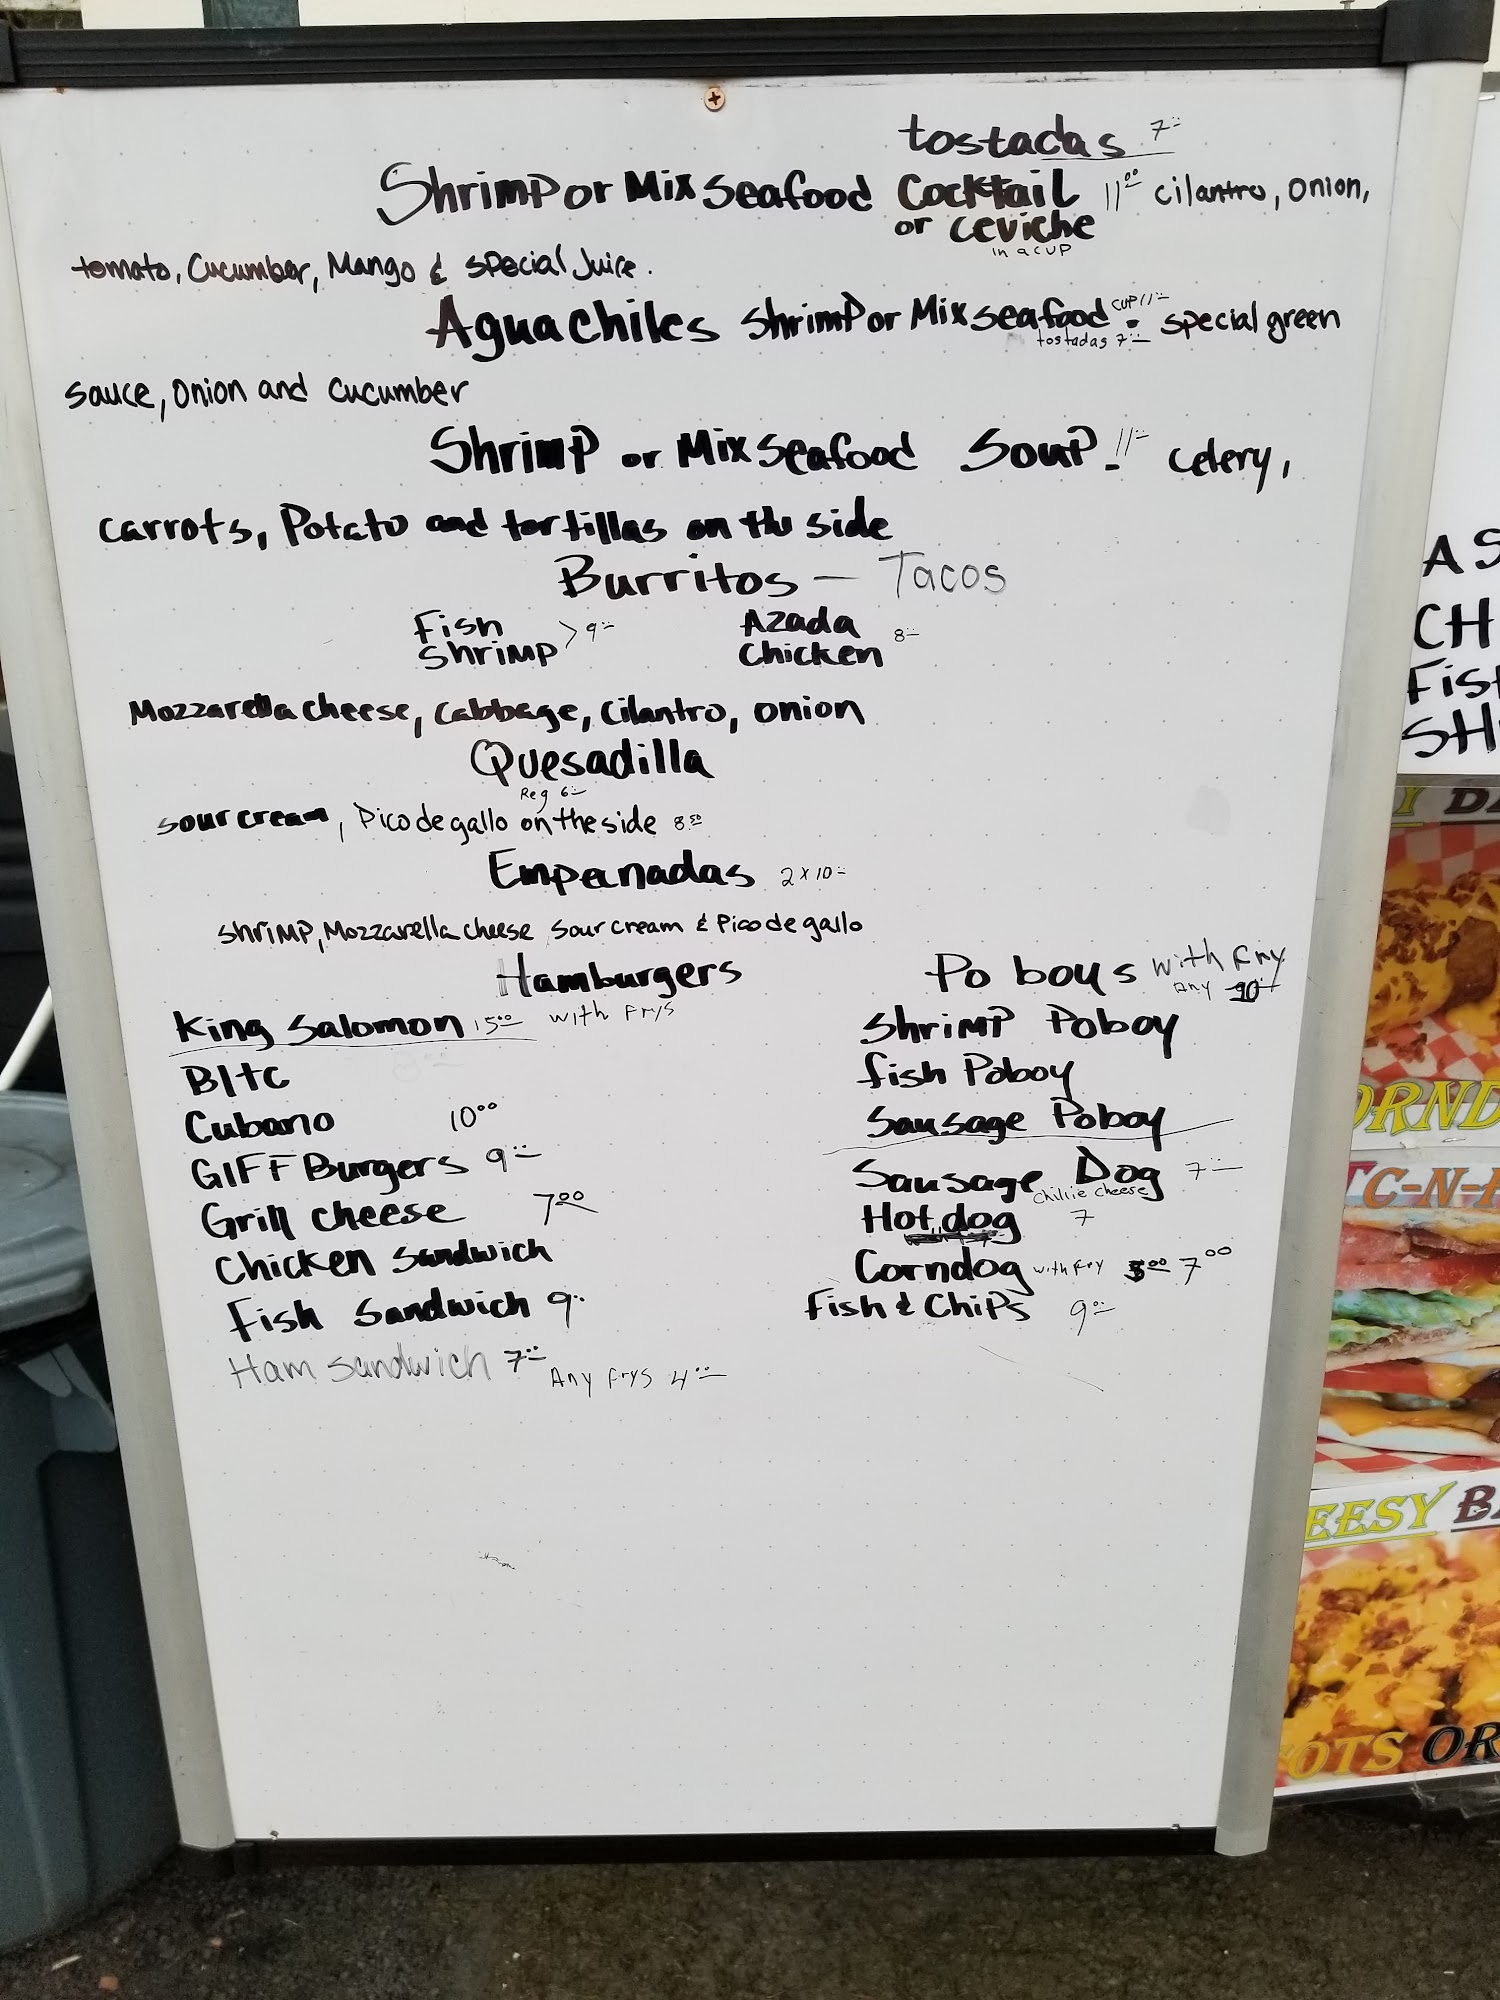 tostadas 7
Shrimp or Mix seafood Cocktail 11.00 cilantro, onion,
or ceviche
in a cup
tomato, Cucumber, Mango & special Juice.
Aguachiles Shrimp or Mix seafood. cup 11 special green
tostadas 7
sauce, onion and cucumber
Shrimp or Mix seafood Soup. 11 celery,
carrots, Potato and tortillas on the side
Burritos — Tacos
Fish Azada
> 9 8
Shrimp Chicken
Mozzarella cheese, cabbage, cilantro, onion
Quesadilla
Reg 6
sour cream, Pico de gallo on the side 8.50
Empanadas 2x10
shrimp, Mozzarella cheese sour cream & Pico de gallo
Hamburgers Po boys with Fry
any
King Salomon 15.00 with Frys Shrimp Poboy
Bltc fish Poboy
Cubano 10.00 Sausage Poboy
GIFF Burgers 9 Sausage Dog 7
chillie cheese
Grill cheese 7.00 Hot dog 7
Chicken Sandwich Corndog with Fry 7.00
Fish Sandwich 9 Fish & Chips 9
Ham sandwich 7 Any Frys 4
AS
CH
FIS
SH
ORND
TC-N-
EESY BA
OTS OR